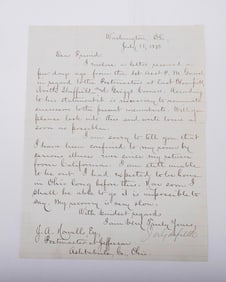 Washington, D.C.
July 11, 18
Dear Friend:
I enclose a letter received a
few days ago from the 1st Asst. P. M. Genl.
in regard to the Postmasters at East Plymouth,
North Sheffield, & Griggs Corners. According
to his statement it is necessary to nominate
successors to the present incumbents. Will you
please look into this and write to me as
soon as possible.
I am sorry to tell you that
I have been confined to my room by
serious illness ever since my return
from California. I am still unable
to be out. I had expected to be home
in Ohio long before this. How soon I
shall be able to go it is impossible to
say. My recovery is very slow.
With kindest regards
I am Very Truly Yours,
J. A. Howell Esq.
Postmaster at Jefferson
Ashtabula, Co, Ohio.